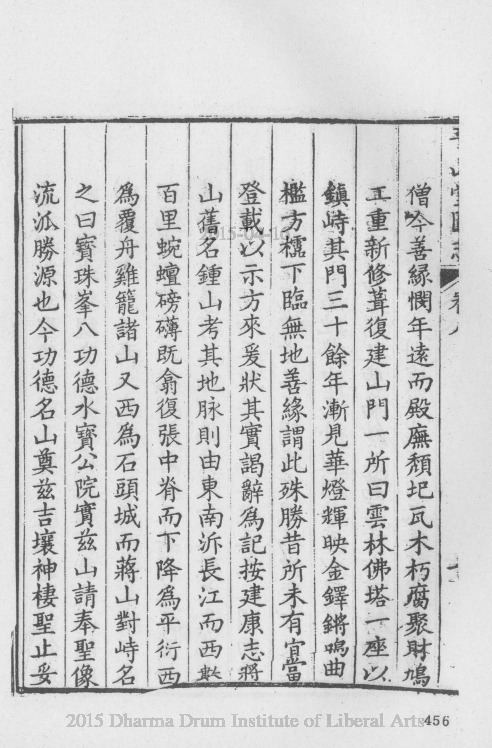 僧今善緣憫年遠而殿廡頹圮瓦木朽腐聚財鳩
工重新修葺復建山門一所曰雲林佛塔一座以
鎮峙其門三十餘年漸見華燈輝映金鐸鏘鳴曲
檻方櫺下臨無地善緣謂此殊勝昔所未有宜當
登載以示方來爰狀其實謁辭為記按建康志蔣
山舊名鍾山考其地脉則由東南泝長江而西數
百里蜿蟺磅礴既翕復張中脊而下降為平衍西
為覆舟雞籠諸山又西為石頭城而蔣山對峙名
之曰寶珠峯八功德水寶公院實茲山請奉聖像
流泒勝源也今功德名山奠茲吉壤神棲聖止妥
2015 Dharma Drum Institute of Liberal Arts
456